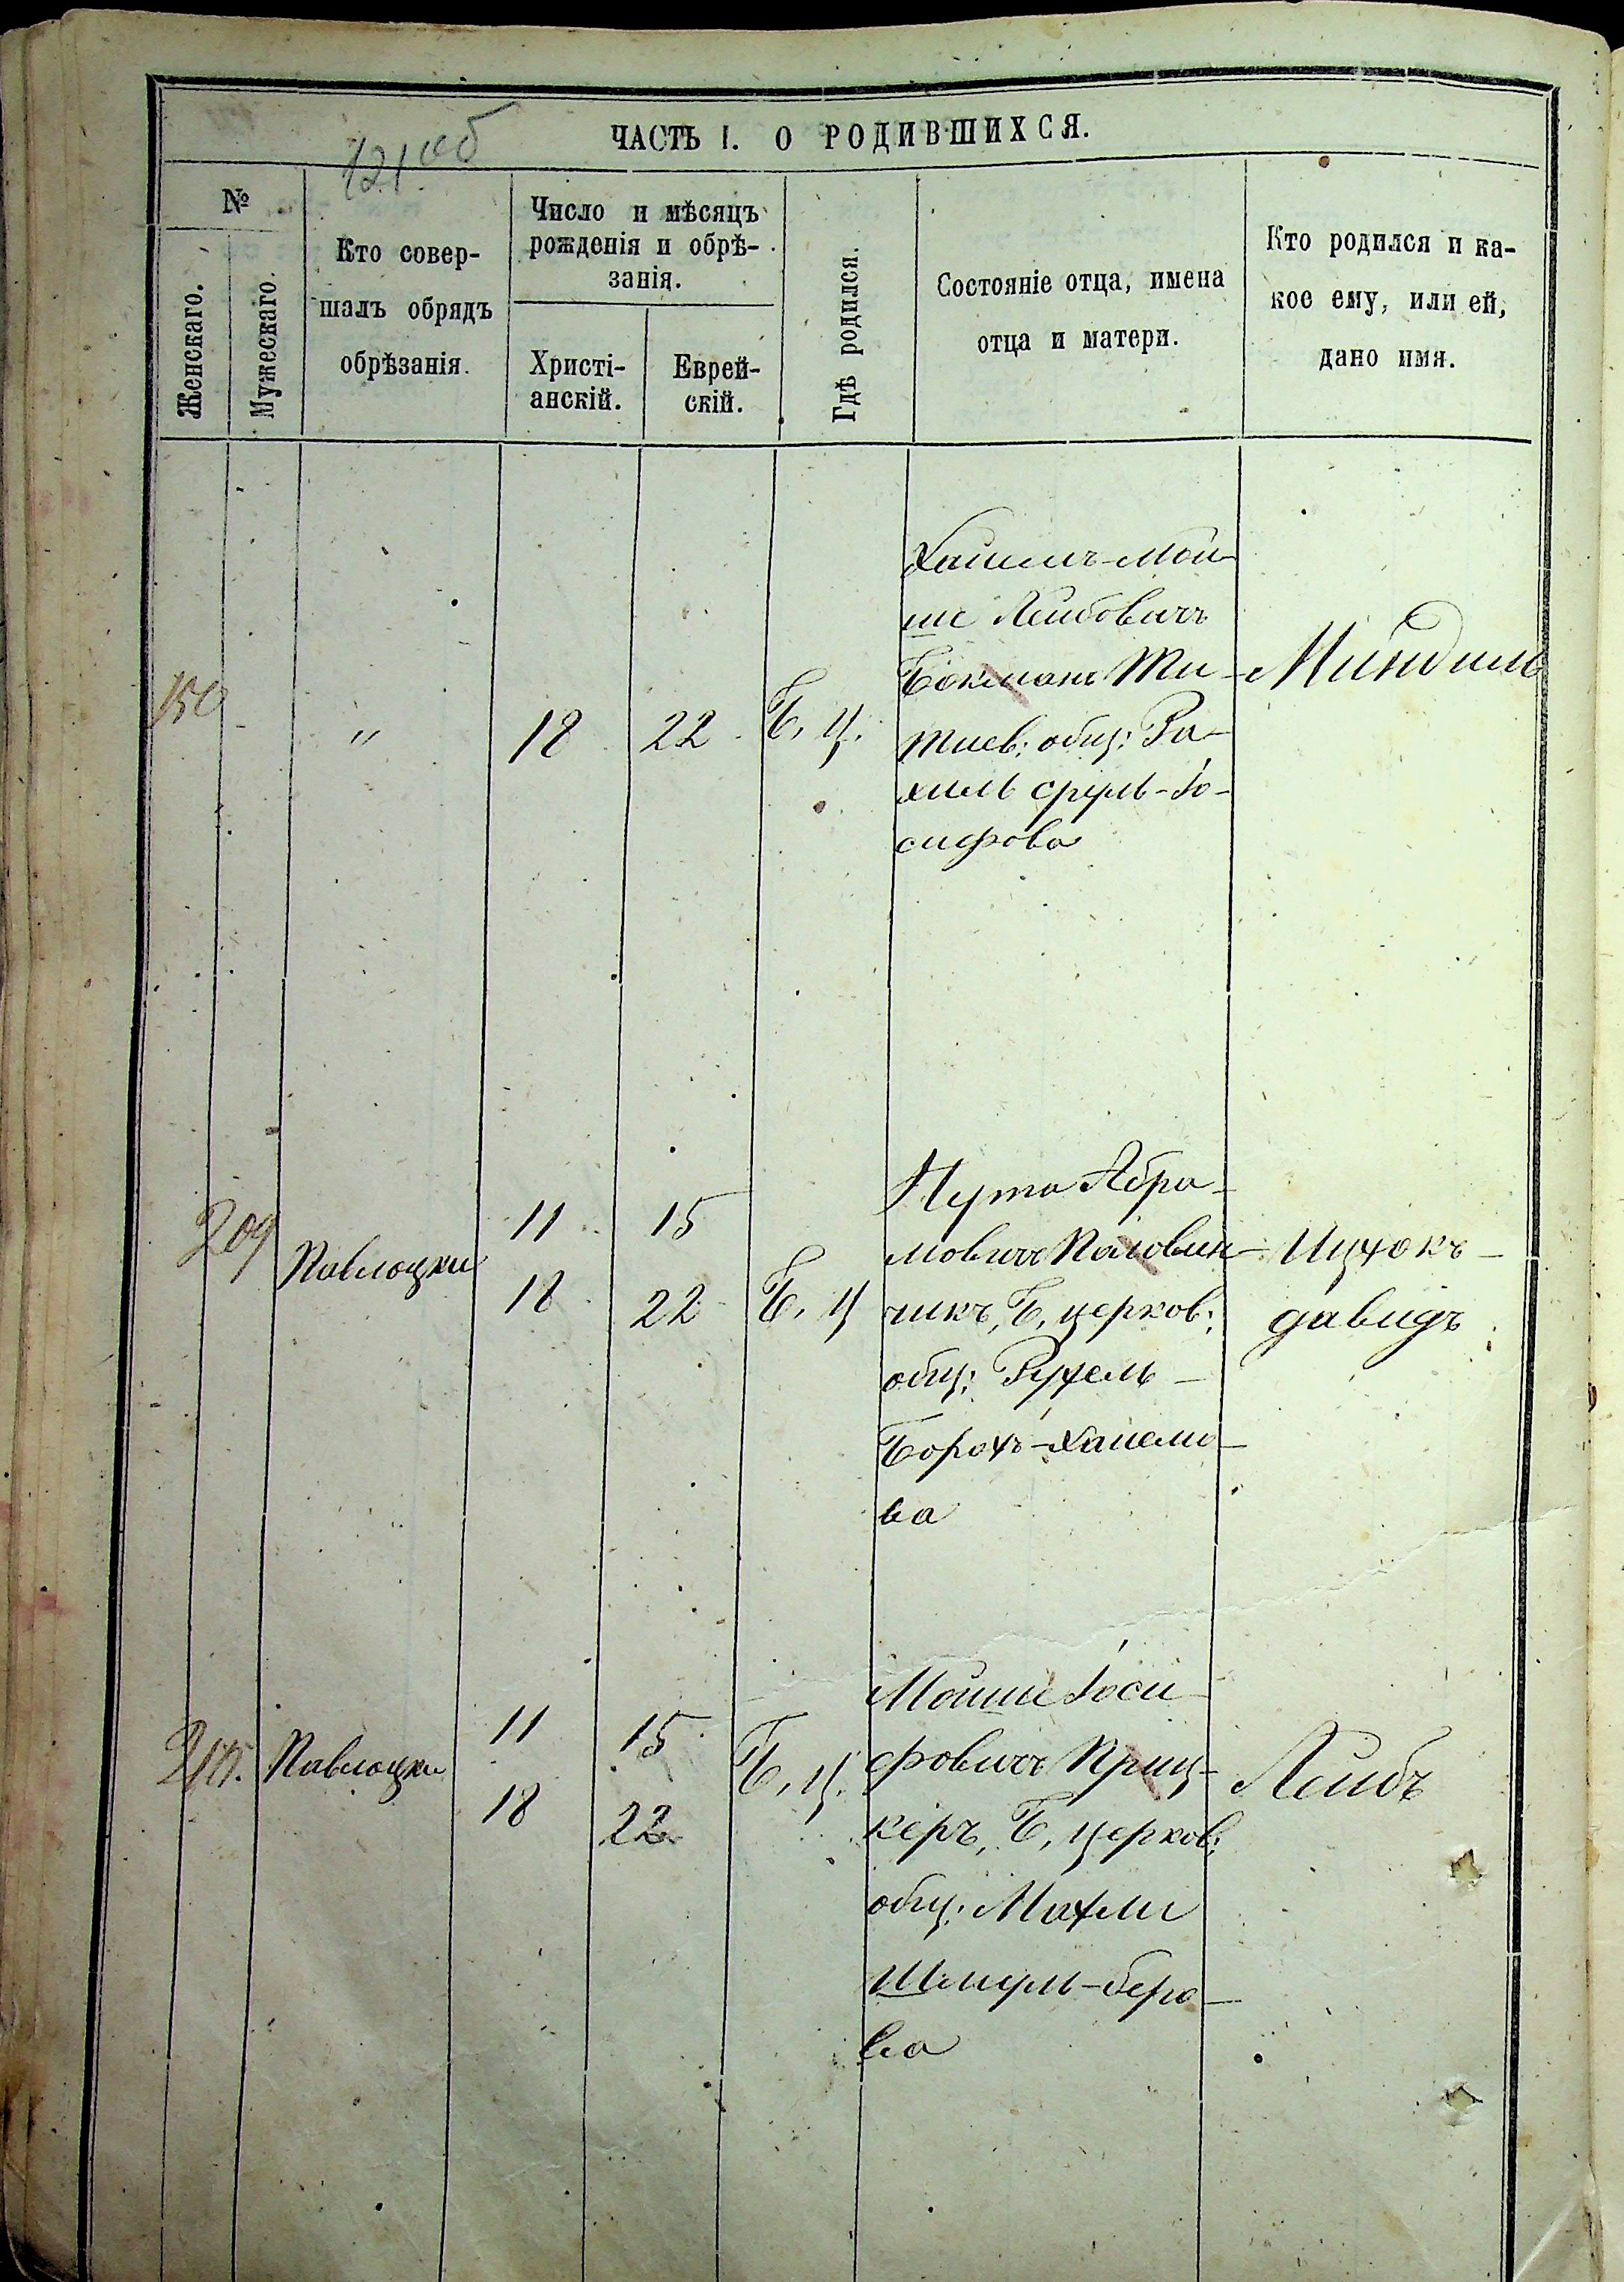 121 об
ЧАСТЬ I. О РОДИВШИХСЯ.
№
Женскаго.
Мужескаго.
Кто совер-
шалъ обрядъ
обрѣзанія.
Число и мѣсяцъ
рожденія и обрѣ-
занія.
Христі-
анскій.
Еврей-
скій.
Гдѣ родился.
Состояніе отца, имена
отца и матери.
Кто родился и ка-
кое ему, или ей,
дано имя.
150
"
18
22
Б, Ц.
Хаимъ-Мой-
ше Лейбовичъ
Бокманъ Ти-
тиев: общ: Ра-
хиль Сруль-Іо-
сифова
Миндиль
209
Павлоцки
11
18
15
22
Б, Ц
Нута Абра-
мовичъ Половин-
чикъ, Б, церков:
общ: Рухель
Борохъ-Хаимо-
ва
Ицхокъ-
давидъ
210.
Павлоцки
11
18
15
22
Б, Ц.
Мойше Іоси-
фовичъ Приц-
керъ, Б, церков:
общ: Махли
Шмуль-беро-
ва
Лейбъ